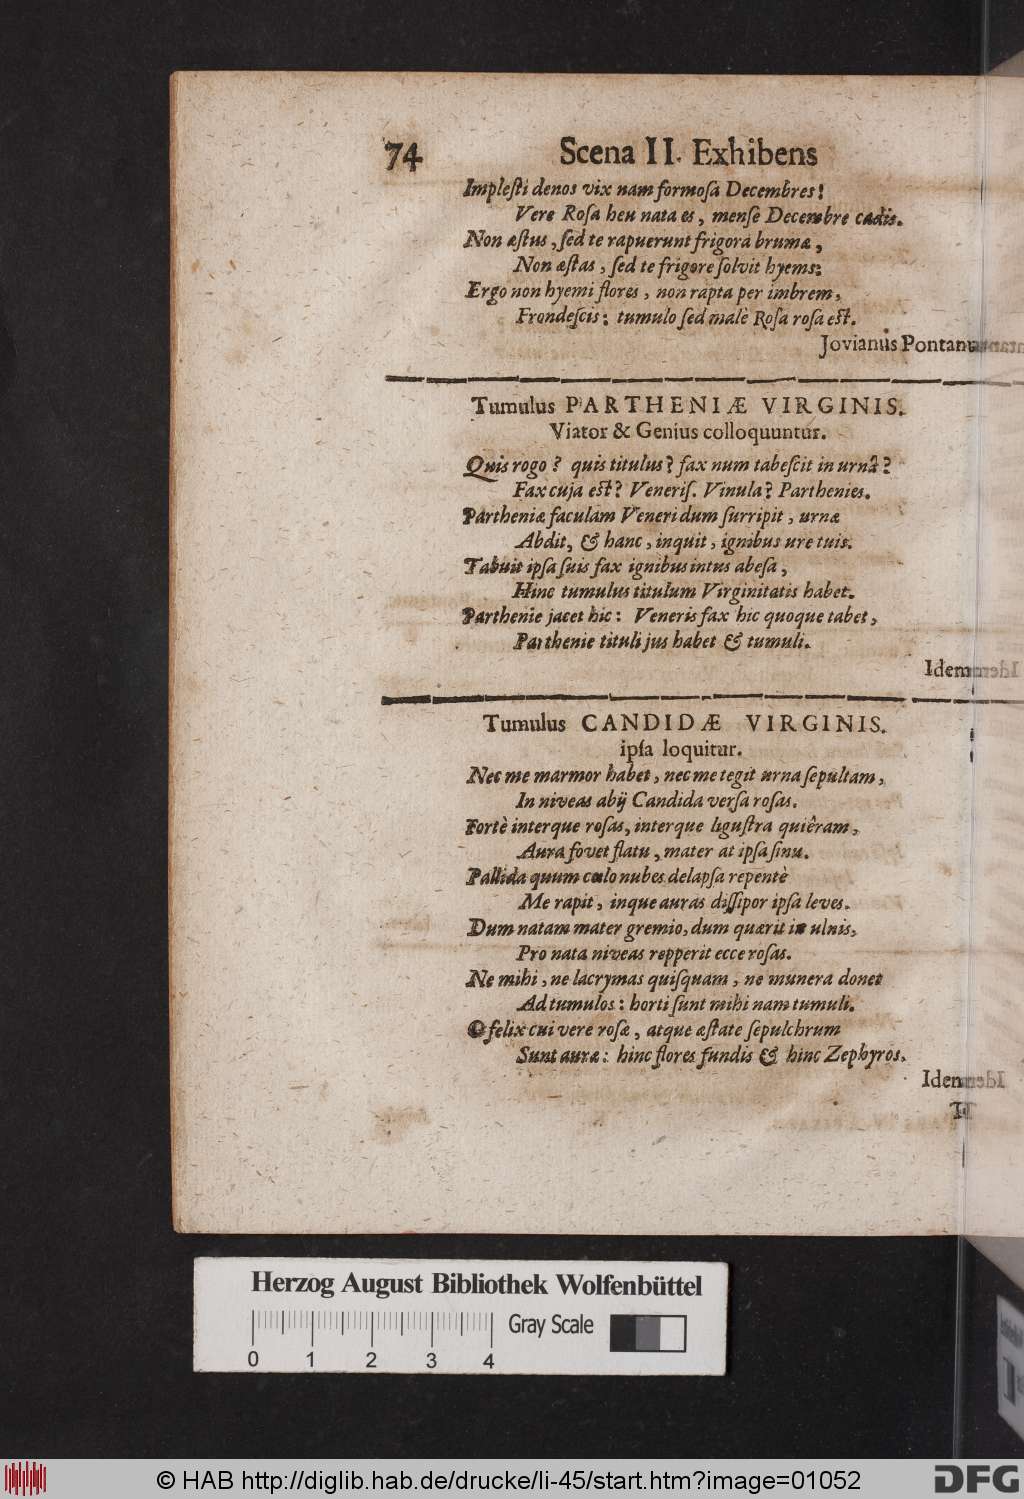 74 Scena II. Exhibens
Impleſti denos vix nam formoſa Decembres!
Vere Roſa heu nata es, menſe Decembre cadis.
Non æſtus, ſed te rapuerunt frigora brumæ,
Non æſtas, ſed te frigore ſolvit hyems:
Ergo non hyemi flores, non rapta per imbrem,
Frondeſcis: tumulo ſed malè Roſa roſa eſt.
Jovianus Pontanus
Tumulus PARTHENIÆ VIRGINIS.
Viator & Genius colloquuntur.
Quis rogo? quis titulus? fax num tabeſcit in urnâ?
Fax cuja eſt? Veneriſ. Vinula? Parthenies.
Partheniæ faculam Veneri dum ſurripit, urnæ
Abdit, & hanc, inquit, ignibus ure tuis.
Tabuit ipſa ſuis fax ignibus intus abeſa,
Hinc tumulus titulum Virginitatis habet.
Parthenie jacet hic: Veneris fax hic quoque tabet,
Parthenie tituli jus habet & tumuli.
Idem
Tumulus CANDIDÆ VIRGINIS.
ipſa loquitur.
Nec me marmor habet, nec me tegit urna ſepultam,
In niveas abij Candida verſa roſas.
Fortè interque roſas, interque liguſtra quiêram,
Aura fovet flatu, mater at ipſa ſinu.
Pallida quum cœlo nubes delapſa repentè
Me rapit, inque auras diſſipor ipſa leves.
Dum natam mater gremio, dum quærit in ulnis,
Pro nata niveas repperit ecce roſas.
Ne mihi, ne lacrymas quiſquam, ne munera donet
Ad tumulos: horti ſunt mihi nam tumuli.
O felix cui vere roſæ, atque æſtate ſepulchrum
Sunt auræ: hinc flores fundis & hinc Zephyros.
Idem
Herzog August Bibliothek Wolfenbüttel
Gray Scale
0 1 2 3 4
© HAB http://diglib.hab.de/drucke/li-45/start.htm?image=01052
DFG